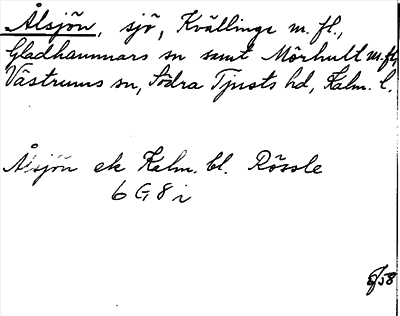 Ålsjön, sjö, Kvällinge m. fl.,
Gladhammars sn samt Mörhult m. fl.
Västrums sn, Södra Tjusts hd, Kalm. l.
Ålsjön ek Kalm. bl. Rössle
6 G 8 i